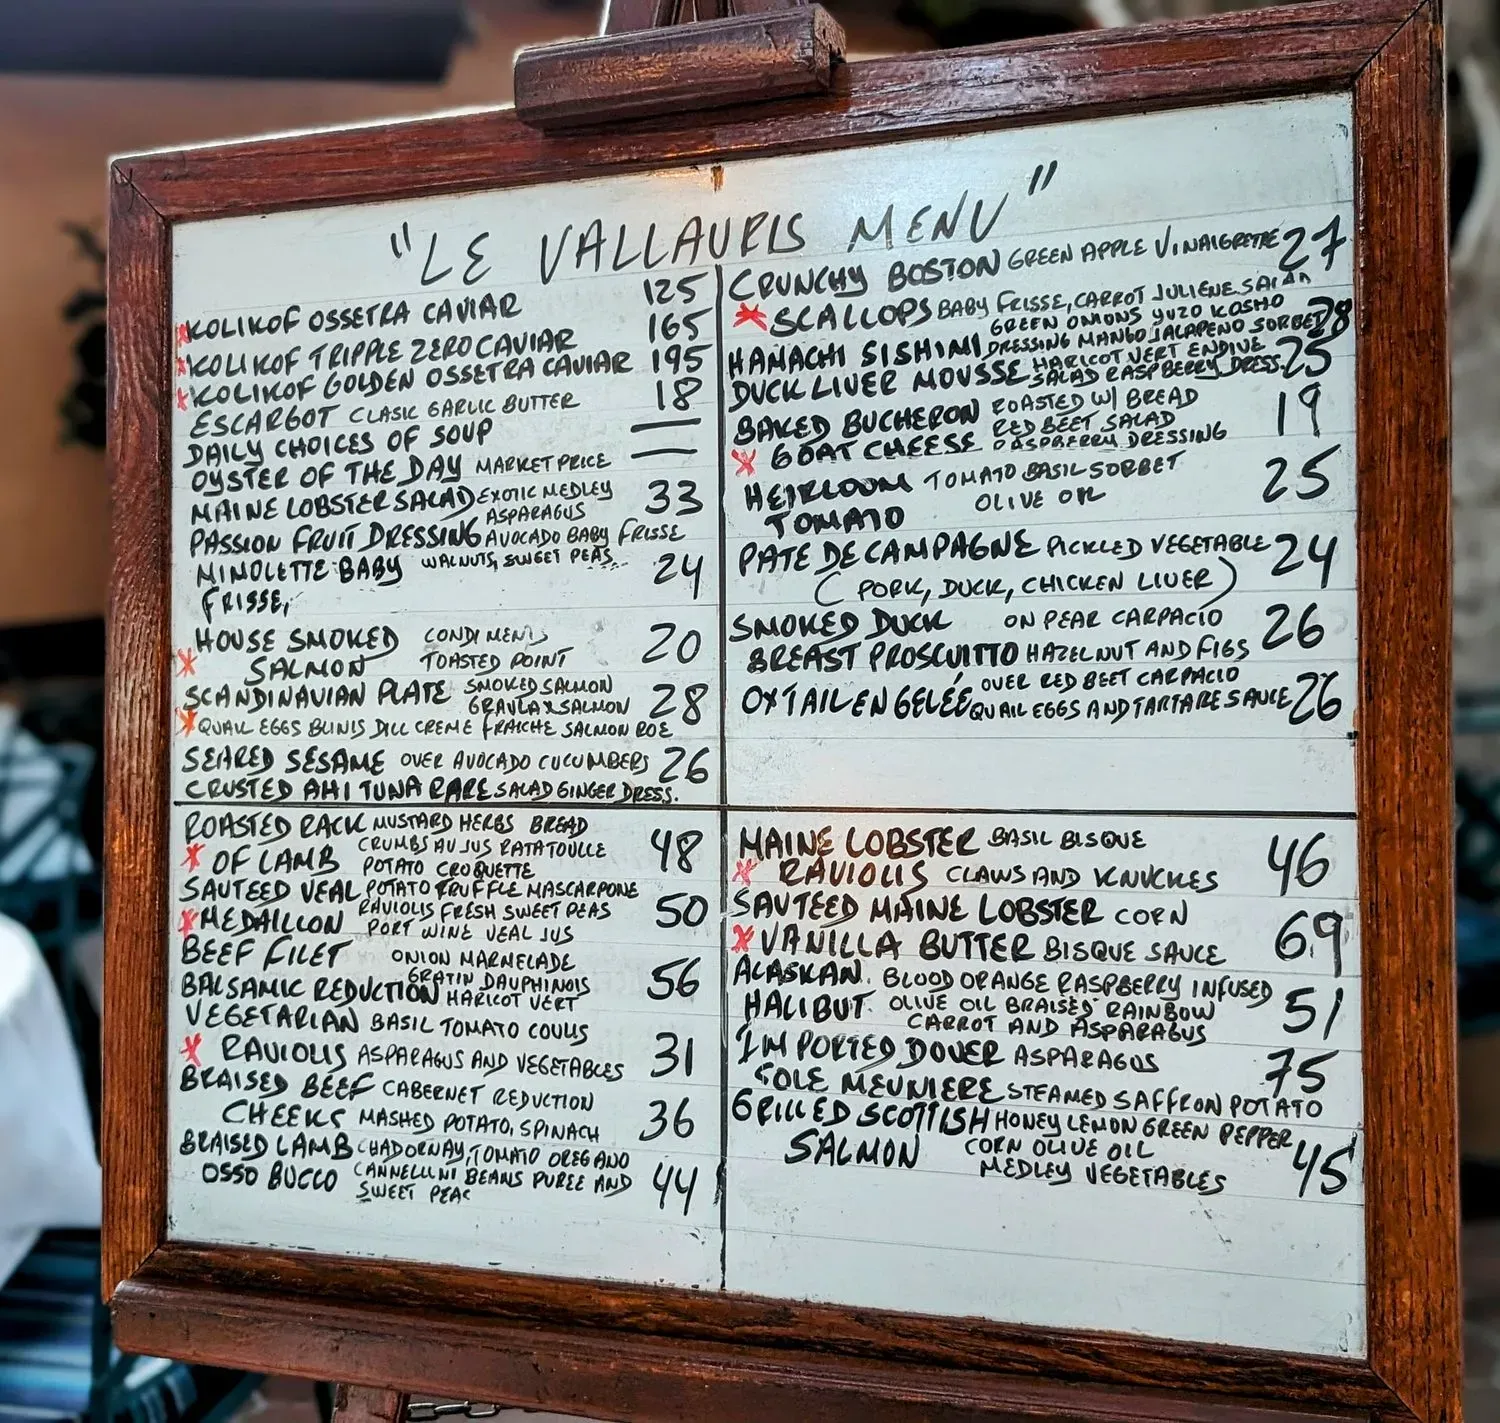 "LE VALLAURIS MENU"
KOLIKOF OSSETRA CAVIAR 125
KOLIKOF TRIPPLE ZERO CAVIAR 165
KOLIKOF GOLDEN OSSETRA CAVIAR 195
ESCARGOT CLASIC GARLIC BUTTER 18
DAILY CHOICES OF SOUP —
OYSTER OF THE DAY MARKET PRICE —
MAINE LOBSTER SALAD EXOTIC MEDLEY 33
ASPARAGUS
PASSION FRUIT DRESSING AVOCADO BABY FRISSE
MIMOLETTE BABY WALNUTS, SWEET PEAS 24
FRISSE,
HOUSE SMOKED CONDIMENTS 20
SALMON TOASTED POINT
SCANDINAVIAN PLATE SMOKED SALMON 28
GRAVLAX SALMON
QUAIL EGGS BLINIS DILL CREME FRAICHE SALMON ROE
SEARED SESAME OVER AVOCADO CUCUMBERS 26
CRUSTED AHI TUNA RARE SALAD GINGER DRESS.
CRUNCHY BOSTON GREEN APPLE VINAIGRETTE 27
SCALLOPS BABY FRISSE, CARROT JULIENE SALAD
GREEN ONIONS YUZO KOSHO 28
HAMACHI SISHIMI DRESSING MANGO JALAPENO SORBET
DUCK LIVER MOUSSE HARICOT VERT ENDIVE 25
SALAD RASPBERRY DRESS.
BAKED BUCHERON ROASTED W/ BREAD 19
RED BEET SALAD
GOAT CHEESE RASPBERRY DRESSING
HEIRLOOM TOMATO BASIL SORBET 25
TOMATO OLIVE OIL
PATE DE CAMPAGNE PICKLED VEGETABLE 24
(PORK, DUCK, CHICKEN LIVER)
SMOKED DUCK ON PEAR CARPACIO 26
BREAST PROSCUITTO HAZELNUT AND FIGS
OXTAIL EN GELÉE OVER RED BEET CARPACIO 26
QUAIL EGGS AND TARTARE SAUCE
ROASTED RACK MUSTARD HERBS BREAD 48
CRUMBS AU JUS RATATOUILLE
OF LAMB POTATO CROQUETTE
SAUTEED VEAL POTATO TRUFFLE MASCARPONE 50
RAVIOLIS FRESH SWEET PEAS
MEDAILLON PORT WINE VEAL JUS
BEEF FILET ONION MARMELADE 56
GRATIN DAUPHINOIS
BALSAMIC REDUCTION HARICOT VERT
VEGETARIAN BASIL TOMATO COULIS 31
RAVIOLIS ASPARAGUS AND VEGETABLES
BRAISED BEEF CABERNET REDUCTION 36
CHEEKS MASHED POTATO, SPINACH
BRAISED LAMB CHADORNAY, TOMATO OREGANO 44
OSSO BUCCO CANNELLINI BEANS PUREE AND
SWEET PEAS
MAINE LOBSTER BASIL BISQUE 46
RAVIOLIS CLAWS AND KNUCKLES
SAUTEED MAINE LOBSTER CORN 69
VANILLA BUTTER BISQUE SAUCE
ALASKAN BLOOD ORANGE RASPBERRY INFUSED 51
HALIBUT OLIVE OIL BRAISED RAINBOW
CARROT AND ASPARAGUS
IMPORTED DOVER ASPARAGUS 75
SOLE MEUNIERE STEAMED SAFFRON POTATO
GRILLED SCOTTISH HONEY LEMON GREEN PEPPER 45
SALMON CORN OLIVE OIL
MEDLEY VEGETABLES